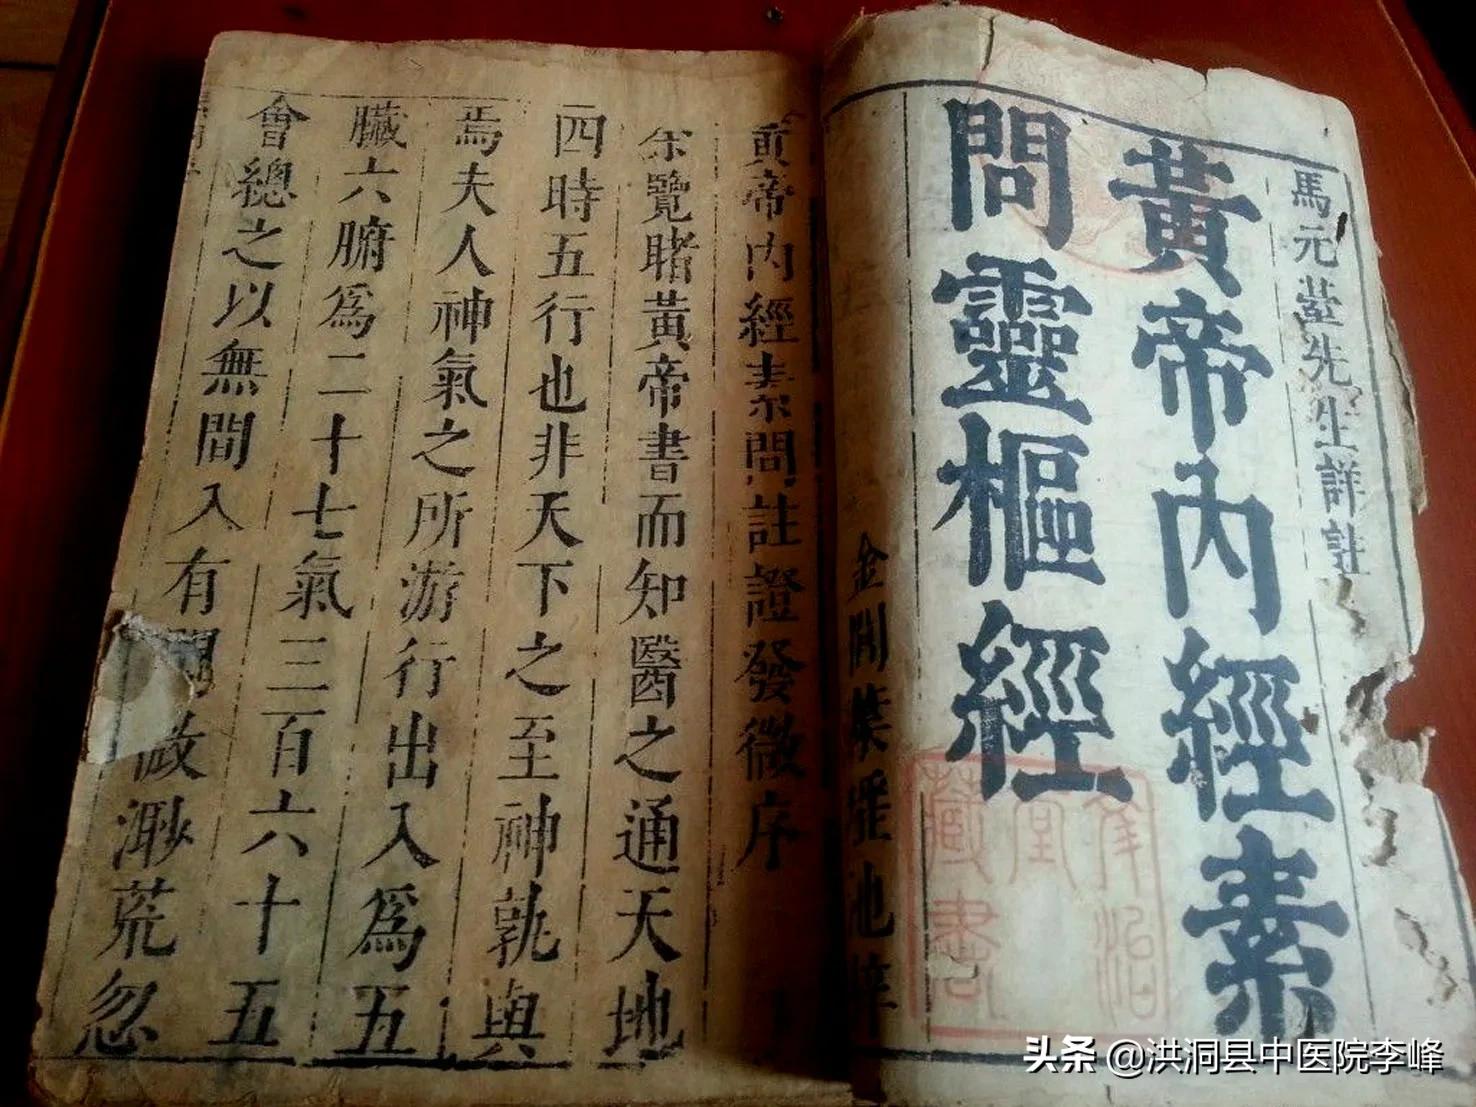 馬元臺先生詳註
黃帝內經素
問靈樞經
金閶葉瑤池梓
藏書
黃帝內經素問註證發微序
余覽睹黃帝書而知醫之通天地
四時五行也非天下之至神孰與
焉夫人神氣之所游行出入為五
臟六腑為二十七氣三百六十五
會總之以無間入有間故渺荒忽
头条 @洪洞县中医院李峰